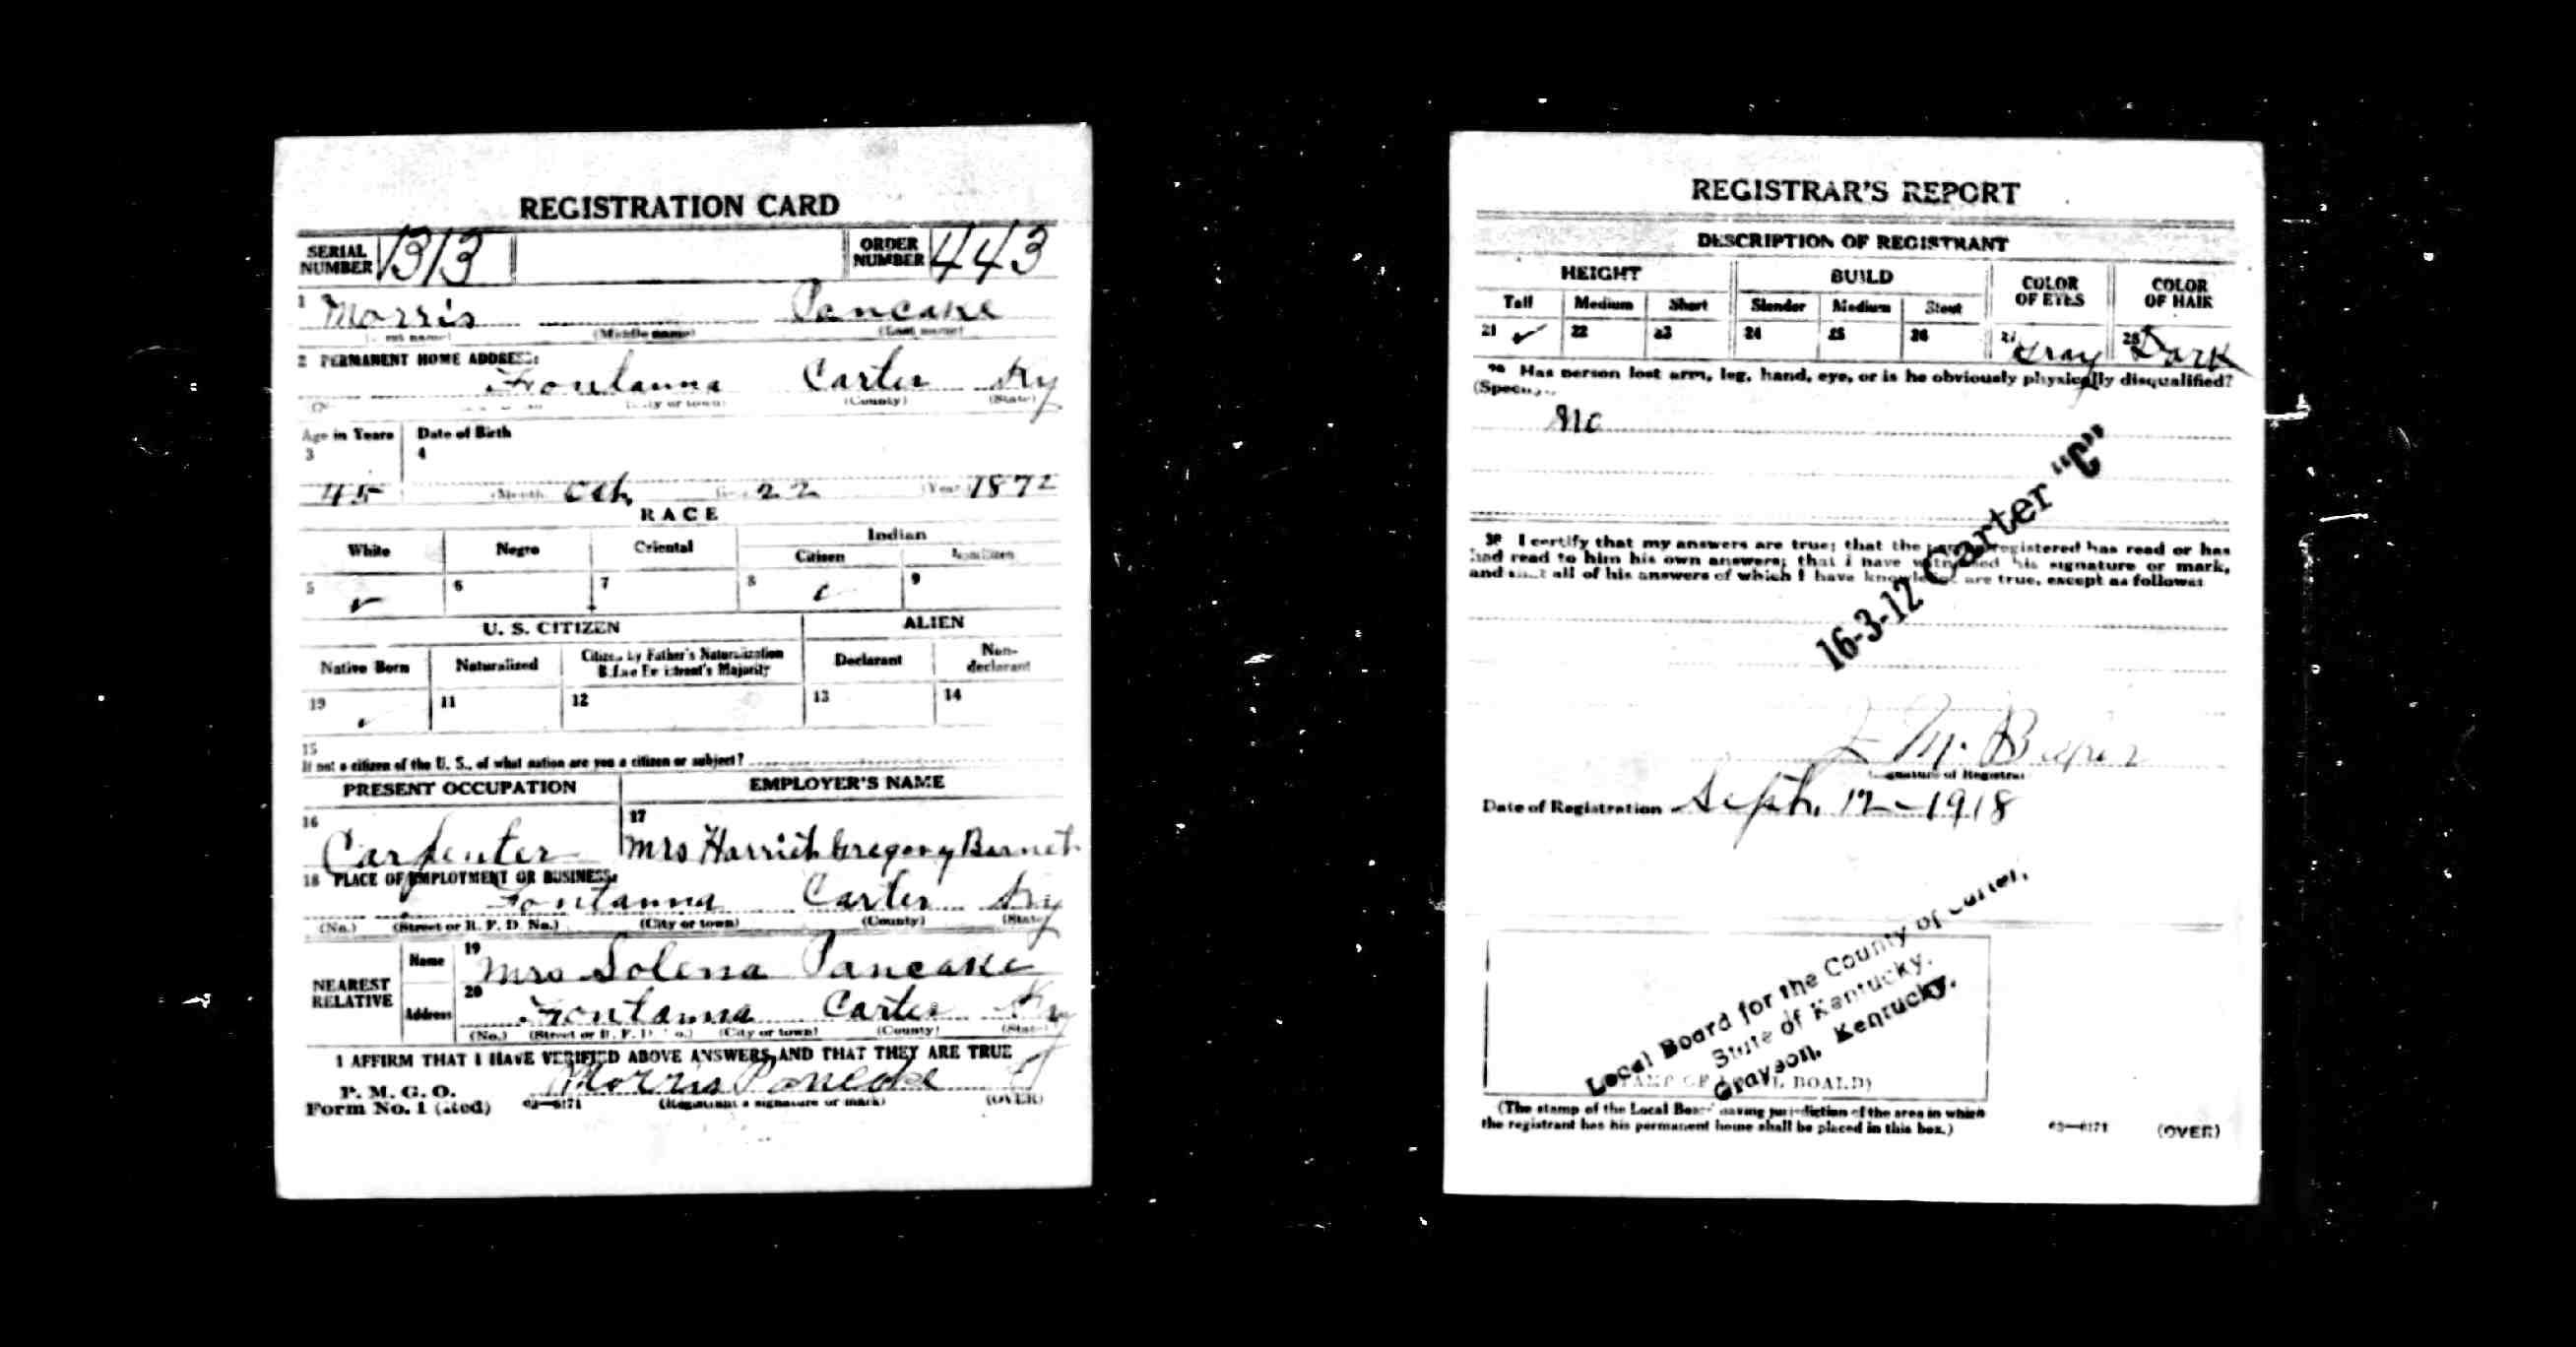 REGISTRATION CARD
SERIAL NUMBER 1313 ORDER NUMBER 443
1 Morris Pancake
(Middle name) (Last name)
2 PERMANENT HOME ADDRESS:
Fontanna Carter Ky
(County) (State)
Age in Years Date of Birth
3 4
45 Oct 22 1872
RACE
White Negro Oriental Indian
Citizen Noncitizen
5 ✓ 6 7 8 9
U. S. CITIZEN ALIEN
Native Born Naturalized Citizen by Father's Naturalization Before Registrant's Majority Declarant Non-declarant
10 ✓ 11 12 13 14
15
If not a citizen of the U. S., of what nation are you a citizen or subject?
PRESENT OCCUPATION EMPLOYER'S NAME
16 17
Carpenter Mrs Harriet Gregory Barnet
18 PLACE OF EMPLOYMENT OR BUSINESS:
Fontanna Carter Ky
(No.) (Street or R. F. D. No.) (City or town) (County) (State)
NEAREST RELATIVE Name 19 Mrs Solena Pancake
Address 20 Fontanna Carter Ky
(No.) (Street or R. F. D. No.) (City or town) (County) (State)
I AFFIRM THAT I HAVE VERIFIED ABOVE ANSWERS AND THAT THEY ARE TRUE
P. M. G. O.
Form No. 1 (Red) 03—6171 Morris Pancake
(Registrant's signature or mark) (OVER)
REGISTRAR'S REPORT
DESCRIPTION OF REGISTRANT
HEIGHT BUILD COLOR OF EYES COLOR OF HAIR
Tall Medium Short Slender Medium Stout
21 ✓ 22 23 24 25 26 27 Gray 28 Dark
29 Has person lost arm, leg, hand, eye, or is he obviously physically disqualified?
(Specify.)
No
30 I certify that my answers are true; that the person registered has read or has
had read to him his own answers; that I have witnessed his signature or mark,
and that all of his answers of which I have knowledge are true, except as follows:
16-3-12 Carter "C"
(Signature of Registrar)
Date of Registration Sept. 12-1918
Local Board for the County of Carter,
State of Kentucky.
Grayson, Kentucky.
(STAMP OF LOCAL BOARD)
(The stamp of the Local Board having jurisdiction of the area in which
the registrant has his permanent home shall be placed in this box.)
03—6171 (OVER)